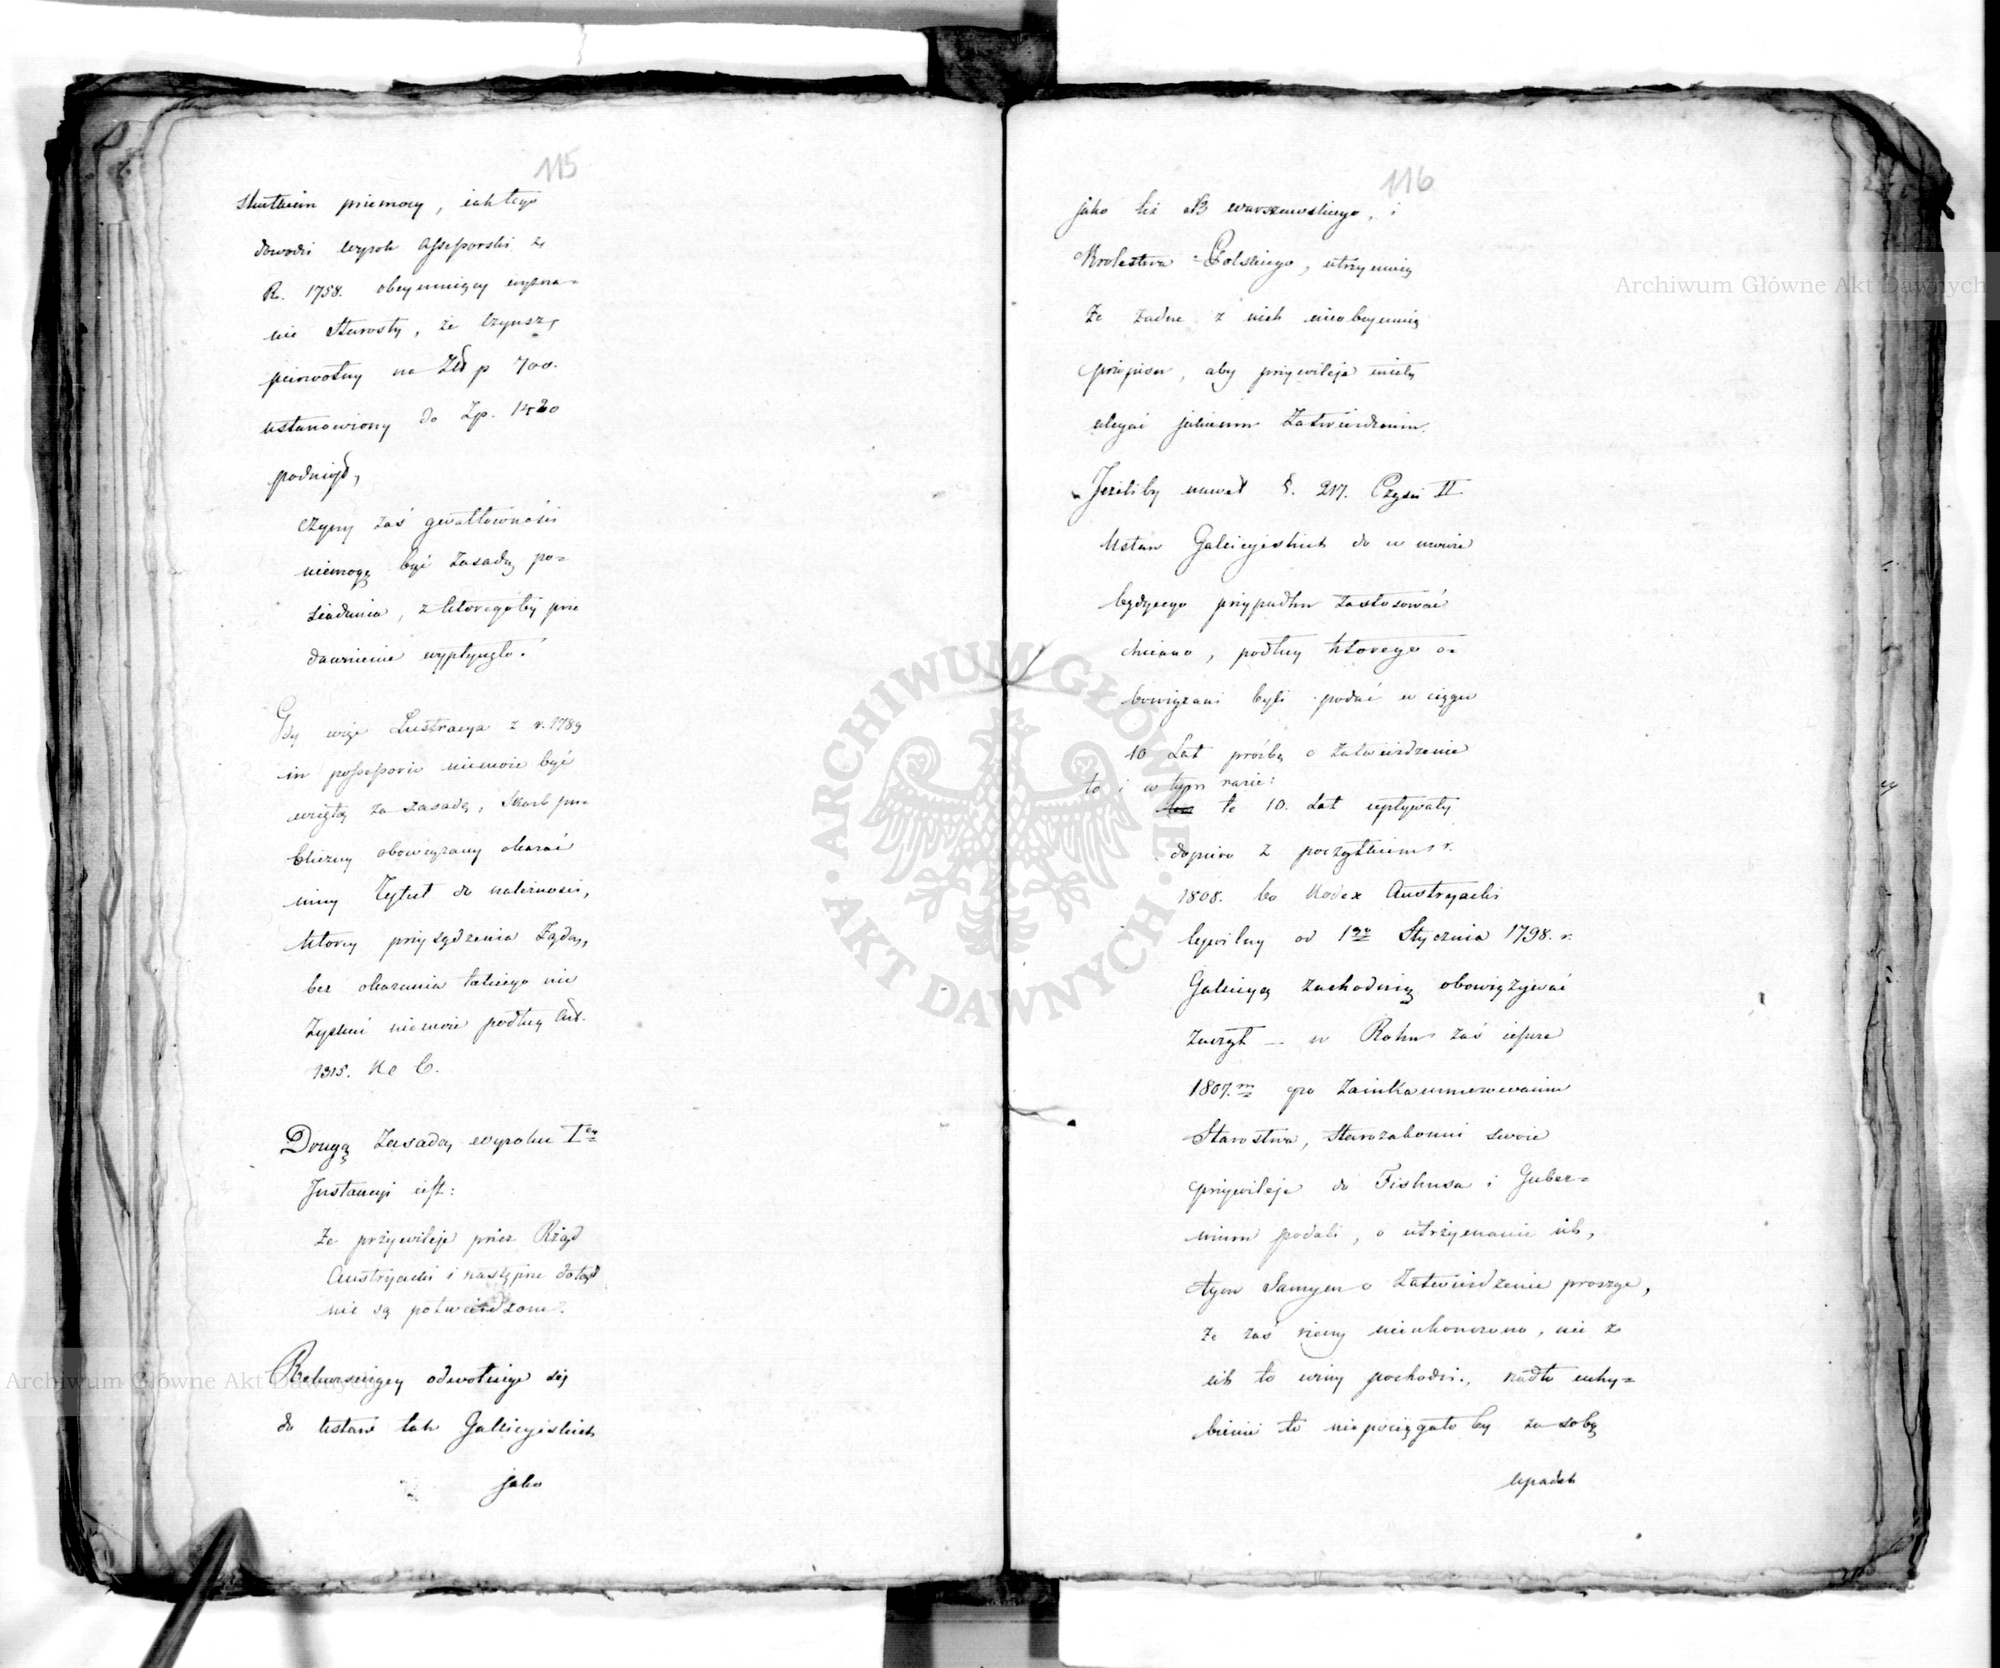 115
skutkiem przemocy, iak tego
dowodzi wyrok Assessorski z
R. 1758. obeymuiący wyzna=
nie Starosty, że Czynsz,
pierwotny na Złł p 700.
ustanowiony do Zp. 1420
podniosł,
czyny zaś gwałtowności
niemogą być zasadą po=
siadania, z ktoregoby prze
dawnienie wypłynęło.
Gdy więc Lustracya z r. 1789
in possessorio niemoże być
wziętą za zasadę, Skarb pu=
bliczny obowiązany okazać
inny Tytuł do należności,
ktorey przysądzenia żąda,
bez okazania takiego nic
zyskać niemoże podług Art.
1315. K C.
Drugą zasadą wyroku Iey
Instancyi iest:
że przywileje przez Rząd
Austryacki i następne dotąd
nie są potwierdzone.
Rekursuiący odwołuje się
do ustaw tak Gallicyiskich
jako
116
jako też X Warszawskiego, i
Krolestwa Polskiego, utrzymuią
że żadne z nich nieobeymuią
przepisu, aby przywileje miały
ulegać jakiemu zatwierdzeniu.
Jeżeliby nawet §. 217. Części II
Ustaw Galicyiskich do w mowie
będącego przypadku zastosować
chciano, podług ktorego o=
bowiązani byli podać w ciągu
10 Lat prośbę o zatwierdzenie
to i w tym razie:
te 10. Lat upływały
dopiero z początkiem r.
1808. bo Kodex Austryacki
Cywilny od 1go Stycznia 1798. r.
Galicyą zachodnią obowiązywać
zaczął – w Roku zaś ieszcze
1807.m po zainkamerowaniu
Starostwa, Starozakonni swoie
przywileje do Fiskusa i Guber=
nium podali, o utrzymanie ich,
tym samym o zatwierdzenie prosząc,
że zaś rzeczy nieukonczono, nie z
ich to winy pochodzi., nadto uchy=
bienie to niepociągało by za sobą
upadek
Archiwum Główne Akt Dawnych
Archiwum Główne Akt Dawnych
ARCHIWUM GŁÓWNE · AKT DAWNYCH ·